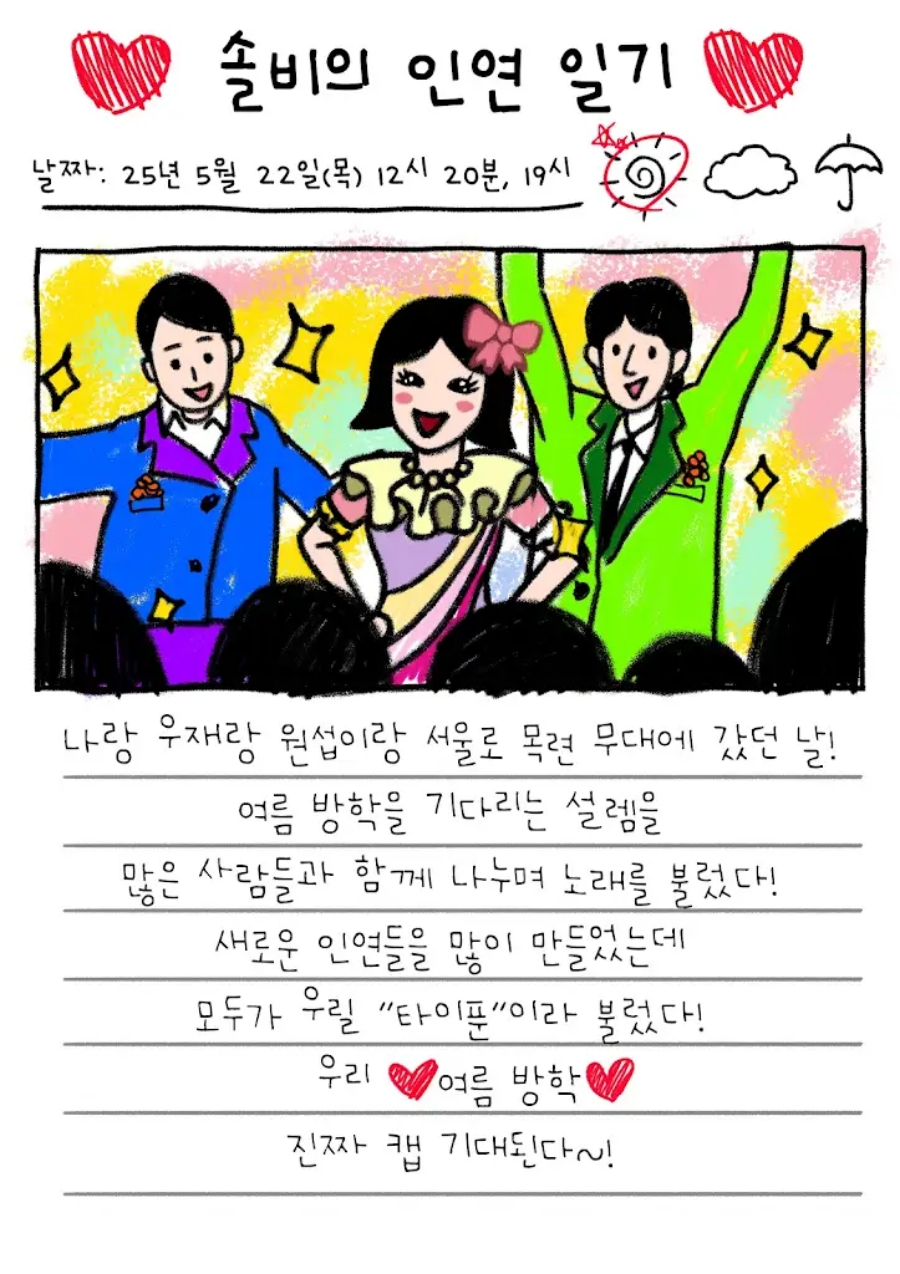 솔비의 인연 일기
날짜: 25년 5월 22일(목) 12시 20분, 19시
나랑 우재랑 원섭이랑 서울로 목련 무대에 갔던 날!
여름 방학을 기다리는 설렘을
많은 사람들과 함께 나누며 노래를 불렀다!
새로운 인연들을 많이 만들었는데
모두가 우릴 "타이푼"이라 불렀다!
우리 여름 방학
진짜 캡 기대된다~!